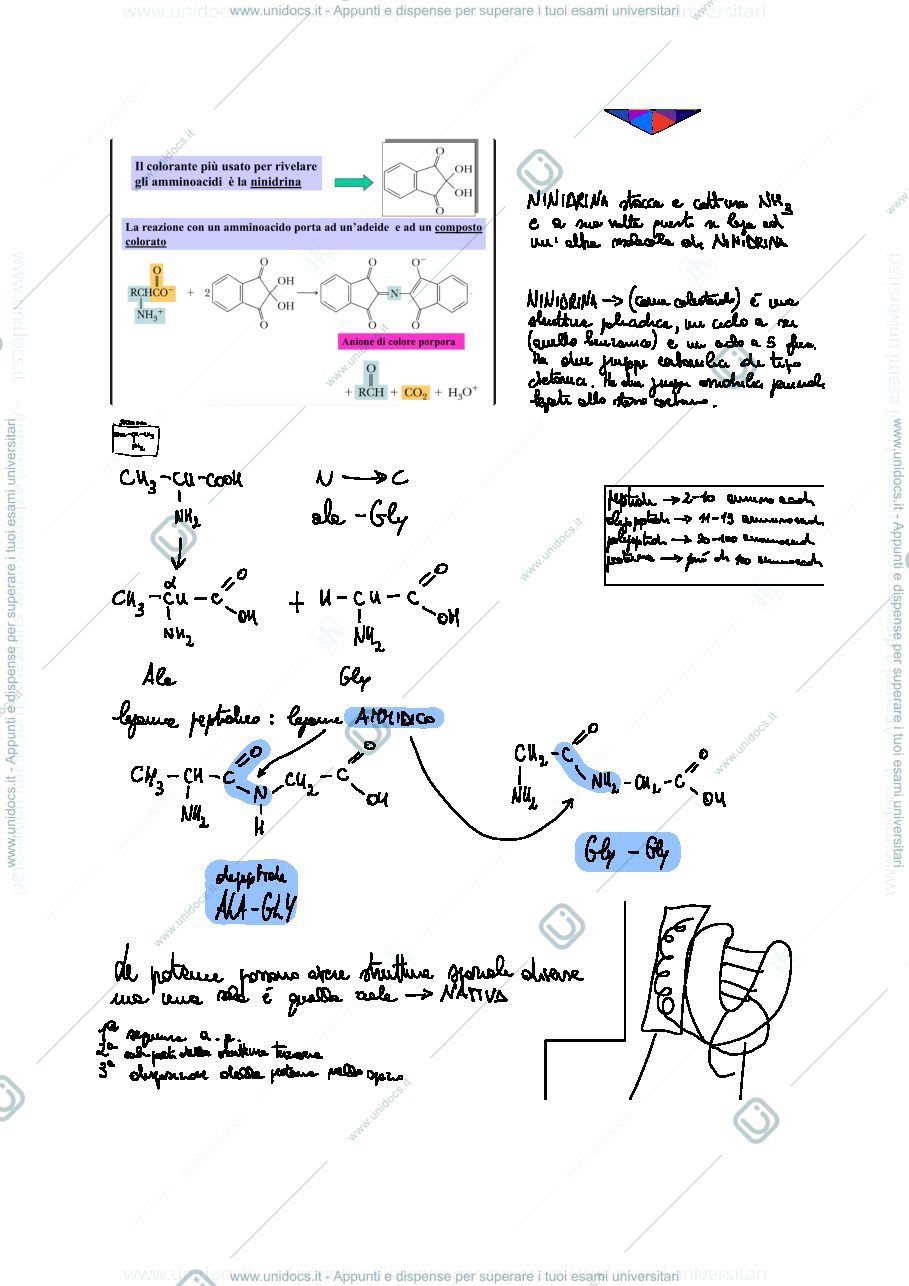 www.unidocs.it - Appunti e dispense per superare i tuoi esami universitari
Il colorante più usato per rivelare
gli amminoacidi è la ninidrina
O
OH
OH
O
La reazione con un amminoacido porta ad un'adeide e ad un composto
colorato
O
RCHCO⁻
NH₃⁺
+ 2
O
OH
OH
O
O
O⁻
N
O
O
Anione di colore porpora
O
+ RCH + CO₂ + H₃O⁺
NINIDRINA stacca e cattura NH₃
e a sua volta questi si lega ad
un' altra molecola di NINIDRINA
NINIDRINA → (come colesterolo) è una
struttura policiclica, un ciclo a sei
(quello benzenico) e un ciclo a 5
Ha due gruppi carbonilici di tipo
chetonico. Ha due gruppi ossidrilici
legati allo stesso carbonio.
CH₃-CH-COOH
NH₂
N → C
ala - Gly
peptide → 2-10 amminoacidi
oligopeptide → 11-19 amminoacidi
polipeptide → 20-100 amminoacidi
proteina → più di 100 amminoacidi
α
CH₃-CH-C
O
OH
NH₂
Ala
+
H-CH-C
O
OH
NH₂
Gly
legame peptidico : legame AMMIDICO
CH₃-CH-C
O
NH₂
N
H
CH₂-C
O
OH
dipeptide
ALA-GLY
CH₂-C
O
NH₂
NH₂-CH₂-C
O
OH
Gly - Gly
Le proteine possono avere struttura spaziale diverse
ma una sola è quella reale → NATIVA
1ª sequenza a.a.
2ª della struttura terziaria
3ª disposizione della proteina nello spazio
www.unidocs.it - Appunti e dispense per superare i tuoi esami universitari